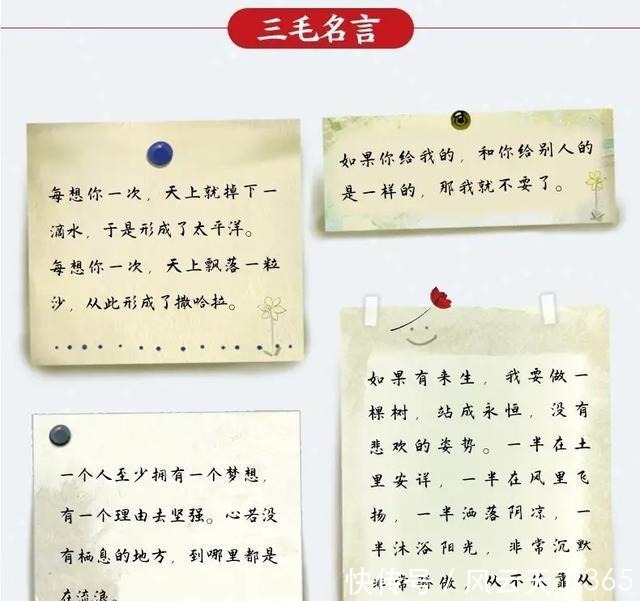 三毛名言
每想你一次，天上就掉下一
滴水，于是形成了太平洋。
每想你一次，天上飘落一粒
沙，从此形成了撒哈拉。
如果你给我的，和你给别人的
是一样的，那我就不要了。
一个人至少拥有一个梦想，
有一个理由去坚强。心若没
有栖息的地方，到哪里都是
在流浪。
如果有来生，我要做一
棵树，站成永恒，没有
悲欢的姿势。一半在土
里安详，一半在风里飞
扬，一半洒落阴凉，一
半沐浴阳光，非常沉默
非常骄傲，从不依靠从
快传号／风云天
365